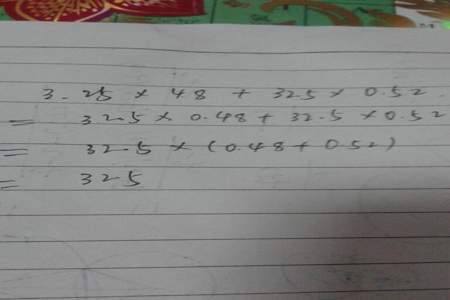 3.25 × 48 + 325 × 0.52
= 32.5 × 0.48 + 32.5 × 0.52
= 32.5 × (0.48 + 0.52)
= 325